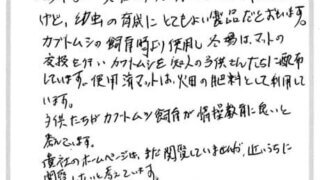 けど、幼虫の育成にとてもよい製品だとおもいます。
カブトムシの飼育時より使用し冬場は、マットの
交換を行いカブトムシを近所の子供さんたちに配布
しています。使用済マットは、畑の肥料として利用して
います。
子供たちがカブトムシ飼育が情操教育に良いと
考えています。
貴社のホームページは、まだ閲覧していませんが、近いうちに
閲覧したいと考えています。